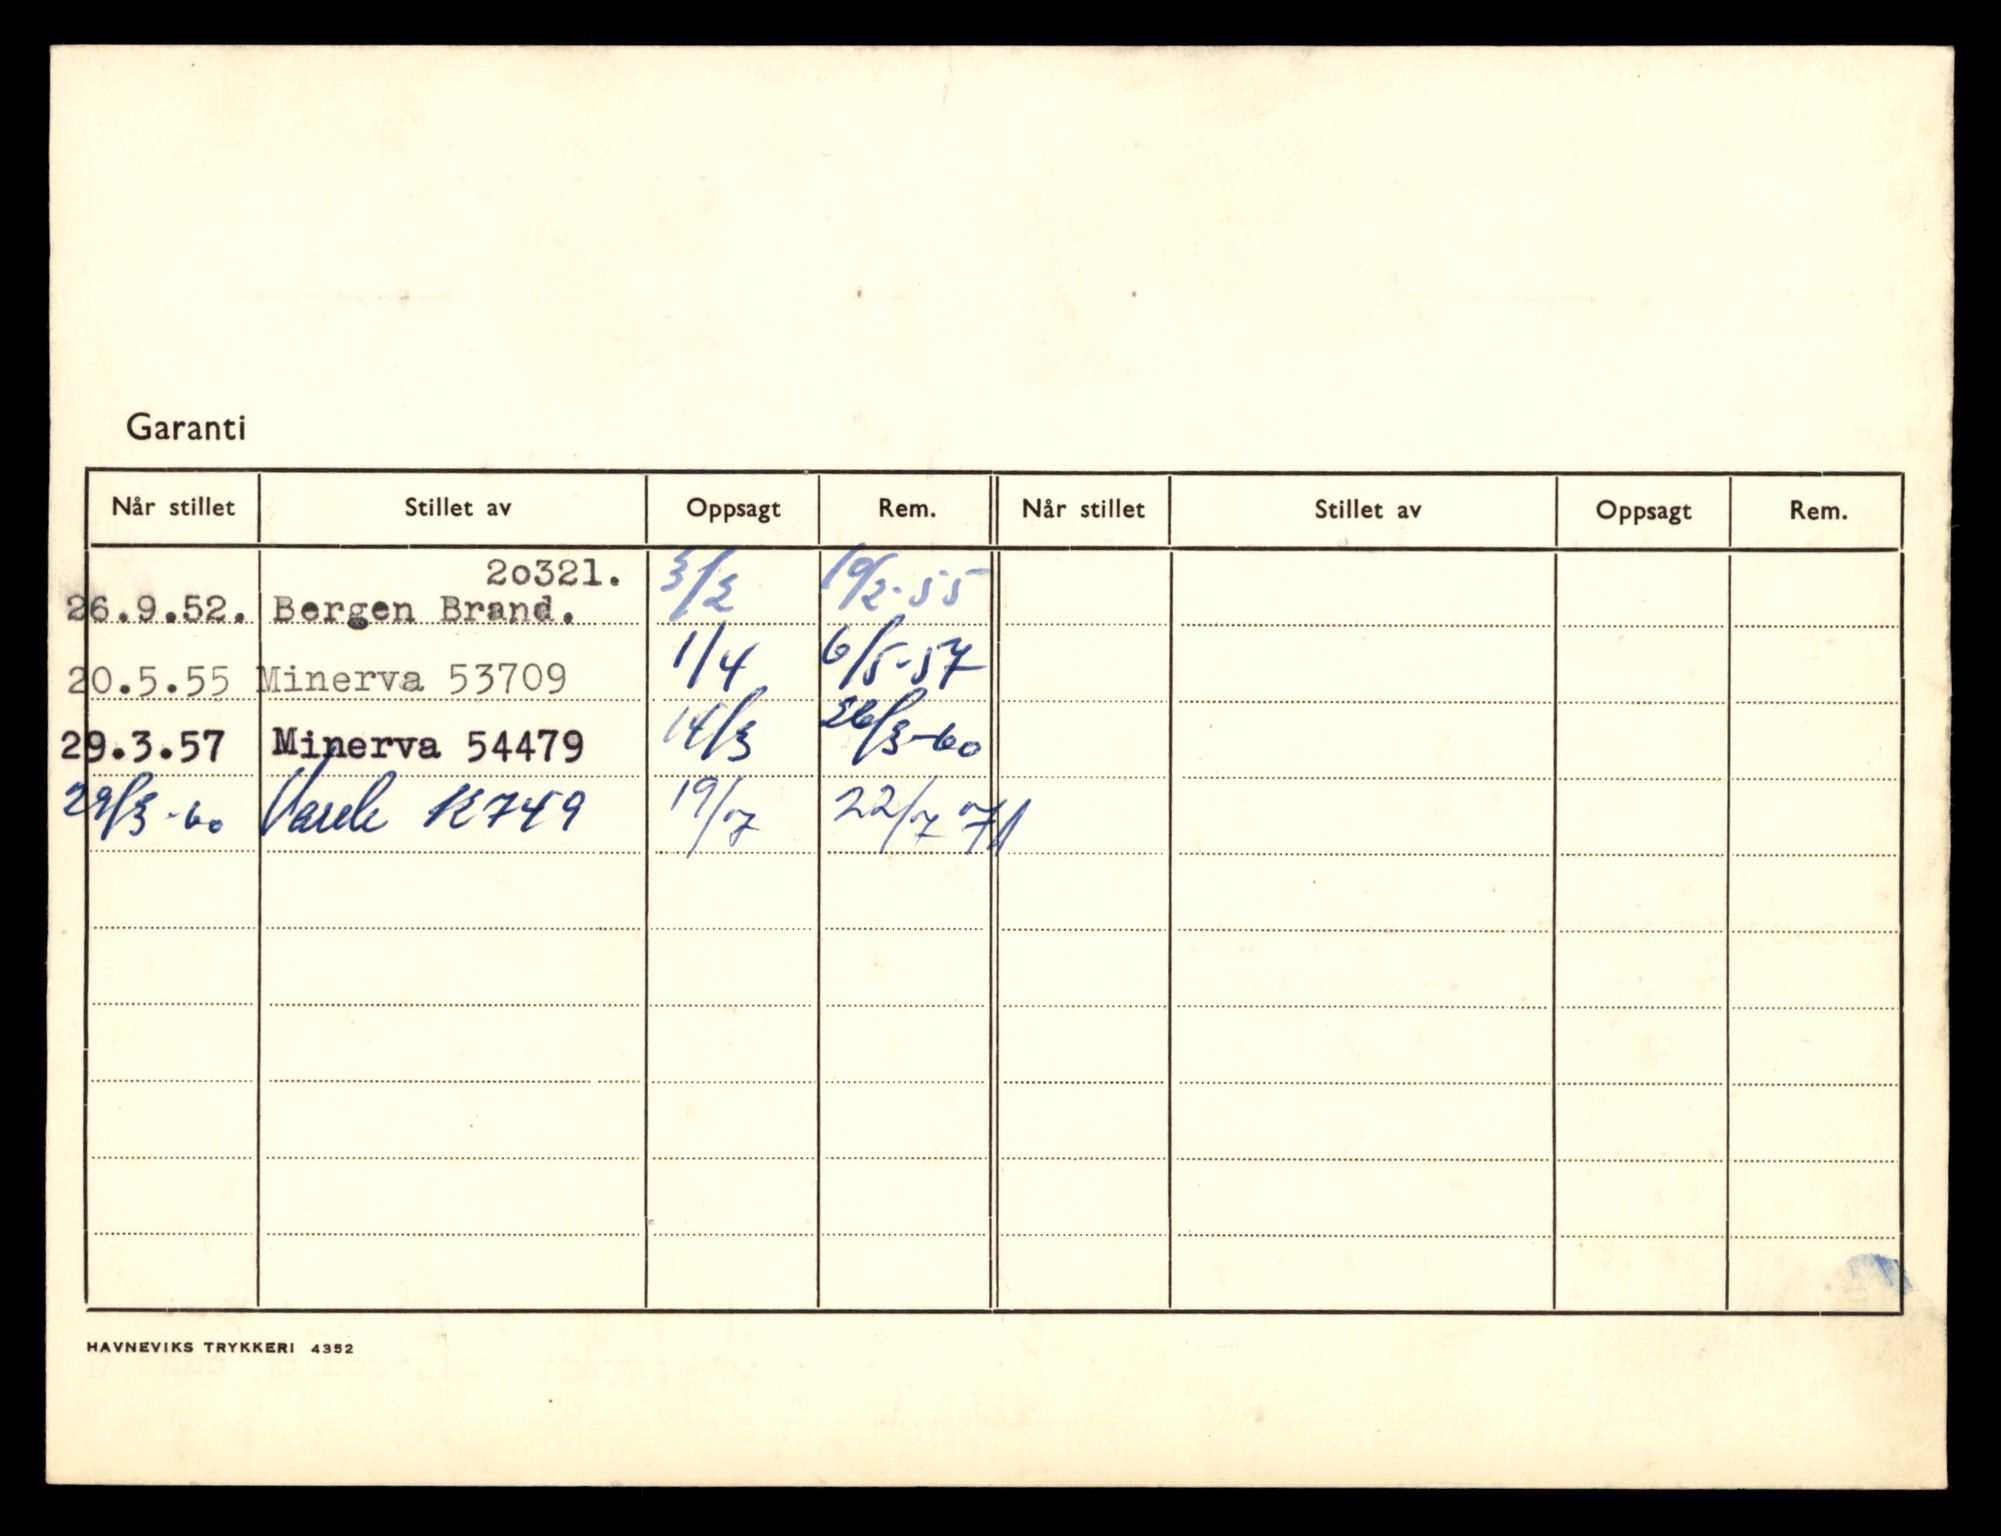 Garanti
Når stillet Stillet av Oppsagt Rem. Når stillet Stillet av Oppsagt Rem.
20321. 3/2 19/2-55
26.9.52. Bergen Brand.
1/4 6/5-57
20.5.55 Minerva 53709
29.3.57 Minerva 54479 14/3 26/3-60
29/3-60 K749 19/7 22/7 71
HAVNEVIKS TRYKKERI 4352